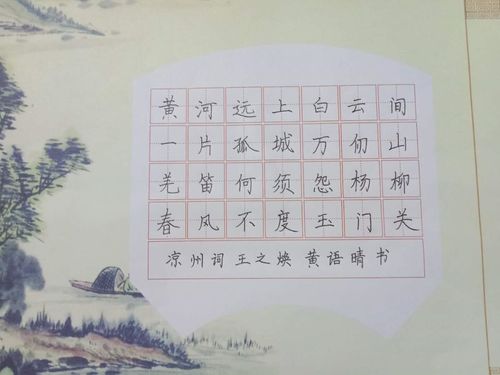 黄河远上白云间
一片孤城万仞山
羌笛何须怨杨柳
春风不度玉门关
凉州词 王之焕 黄语晴书